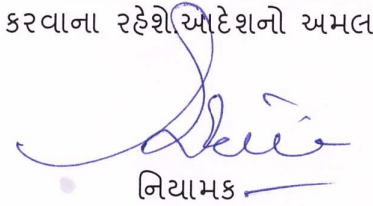 કરવાના રહેશે.આદેશનો અમલ
નિયામક